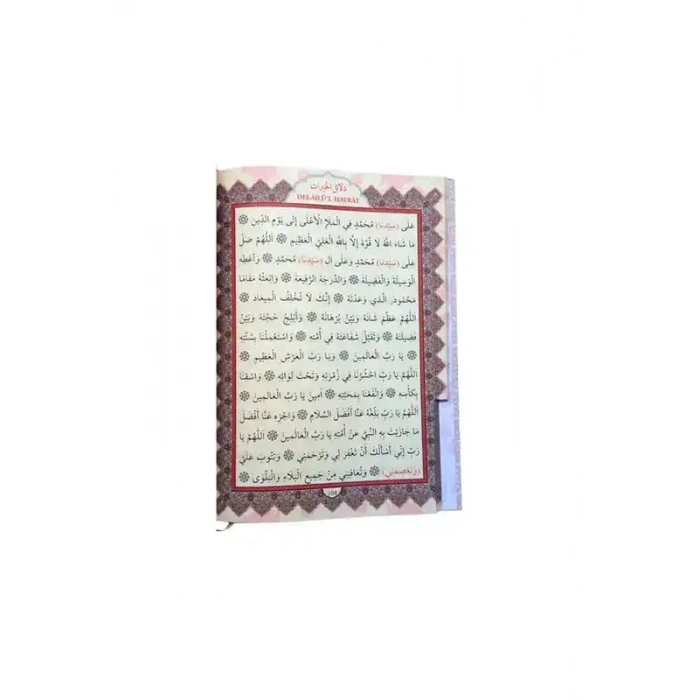 دلائل الخيرات
DELAİLÜ'L HAYRAT
عَلَى (سَيِّدِنَا) مُحَمَّدٍ فِي الْمَلَإِ الْأَعْلَى إِلَى يَوْمِ الدِّينِ ❁
مَا شَاءَ اللهُ لَا قُوَّةَ إِلَّا بِاللهِ الْعَلِيِّ الْعَظِيمِ ❁ اَللّٰهُمَّ صَلِّ
عَلَى (سَيِّدِنَا) مُحَمَّدٍ وَعَلَى آلِ (سَيِّدِنَا) مُحَمَّدٍ ❁ وَأَعْطِهِ
الْوَسِيلَةَ وَالْفَضِيلَةَ ❁ وَالدَّرَجَةَ الرَّفِيعَةَ ❁ وَابْعَثْهُ مَقَامًا
مَحْمُودًا الَّذِي وَعَدْتَهُ ❁ إِنَّكَ لَا تُخْلِفُ الْمِيعَادَ ❁
اَللّٰهُمَّ عَظِّمْ شَانَهُ وَبَيِّنْ بُرْهَانَهُ ❁ وَأَبْلِجْ حُجَّتَهُ وَبَيِّنْ
فَضِيلَتَهُ ❁ وَتَقَبَّلْ شَفَاعَتَهُ فِي أُمَّتِهِ ❁ وَاسْتَعْمِلْنَا بِسُنَّتِهِ
❁ يَا رَبَّ الْعَالَمِينَ ❁ وَيَا رَبَّ الْعَرْشِ الْعَظِيمِ ❁
اَللّٰهُمَّ يَا رَبِّ احْشُرْنَا فِي زُمْرَتِهِ وَتَحْتَ لِوَائِهِ ❁ وَاسْقِنَا
بِكَأْسِهِ ❁ وَانْفَعْنَا بِمَحَبَّتِهِ ❁ اٰمِينَ يَا رَبَّ الْعَالَمِينَ ❁
اَللّٰهُمَّ يَا رَبِّ بَلِّغْهُ عَنَّا أَفْضَلَ السَّلَامِ ❁ وَاجْزِهِ عَنَّا أَفْضَلَ
مَا جَازَيْتَ بِهِ النَّبِيَّ عَنْ أُمَّتِهِ يَا رَبَّ الْعَالَمِينَ ❁ اَللّٰهُمَّ يَا
رَبِّ إِنِّي أَسْأَلُكَ أَنْ تَغْفِرَ لِي وَتَرْحَمَنِي ❁ وَتَتُوبَ عَلَيَّ
(وَتَعْصِمَنِي) ❁ وَتُعَافِيَنِي مِنْ جَمِيعِ الْبَلَاءِ وَالْبَلْوَى ❁